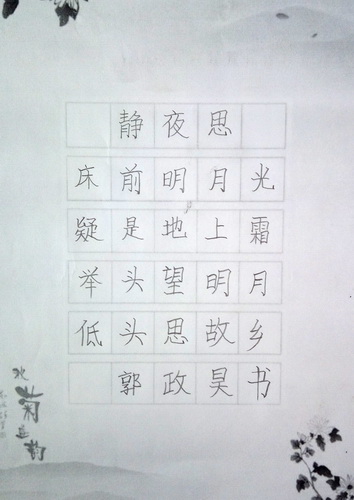 静夜思
床前明月光
疑是地上霜
举头望明月
低头思故乡
郭政昊书